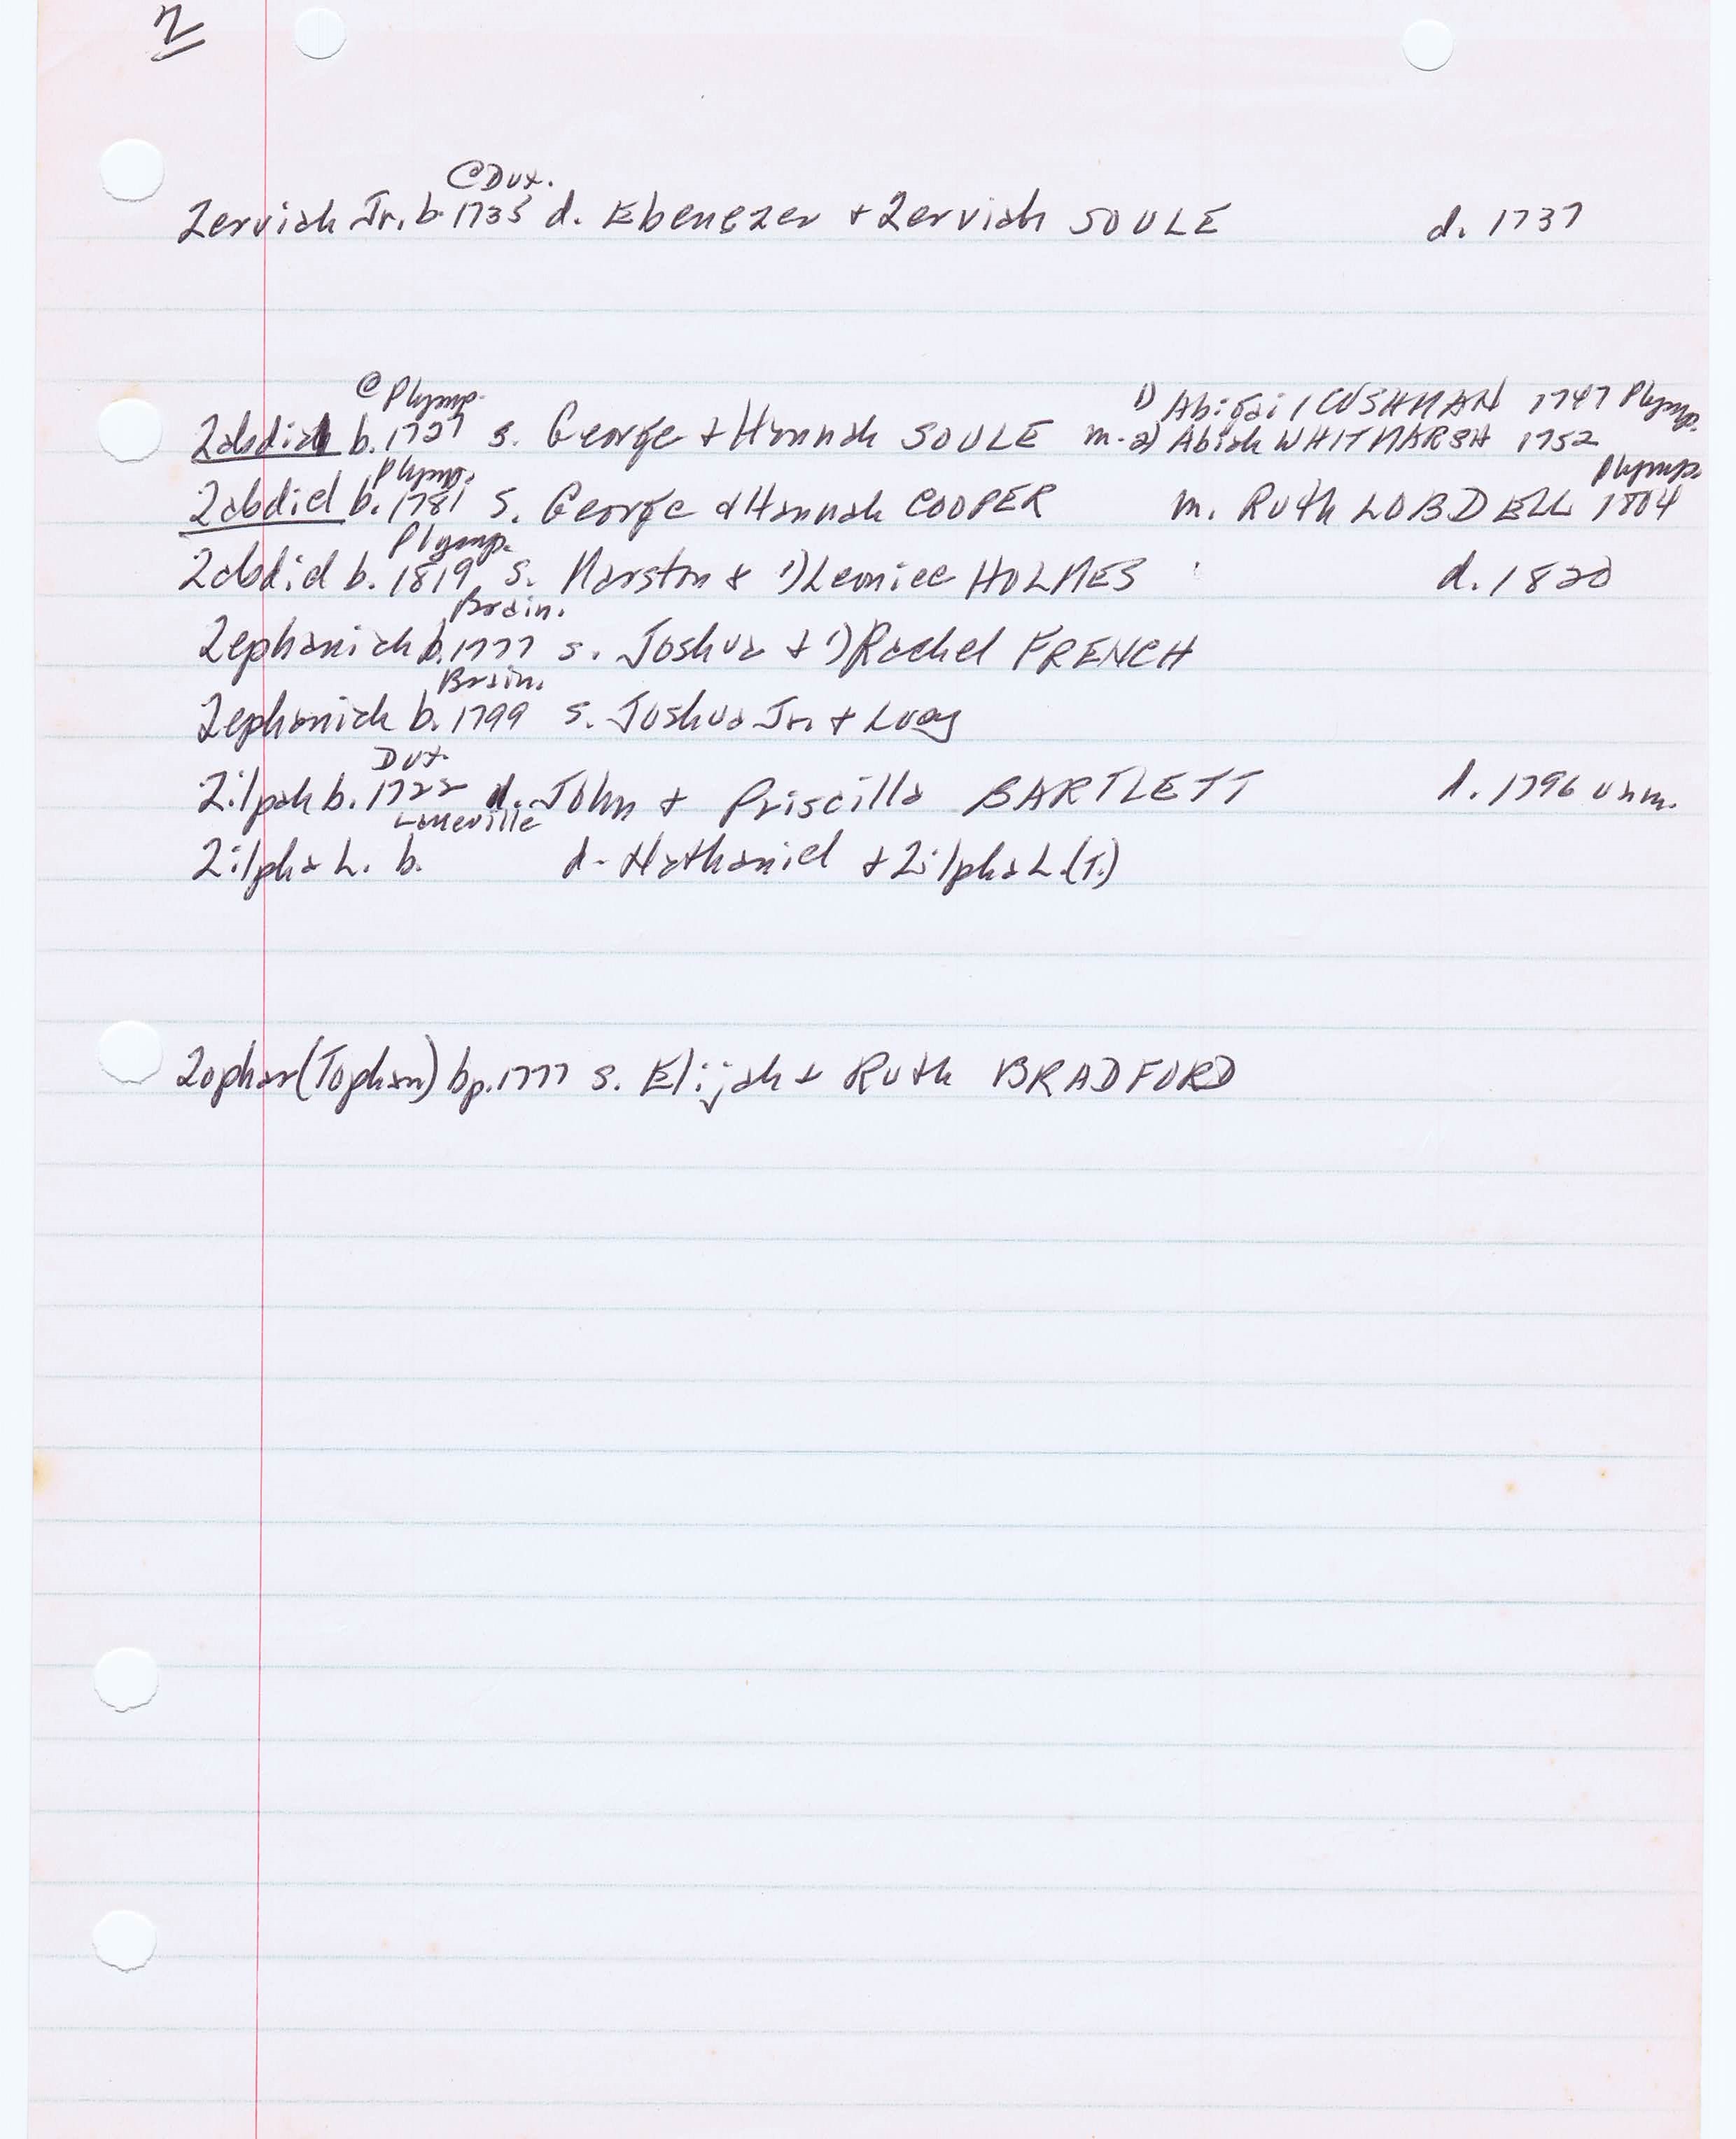 Z
@ Dux.
Zerviah Jr. b. 1735 d. Ebenezer + Zerviah SOULE d. 1737
@ Plymp. 1) Abigail CUSHMAN 1747 Plymp.
Zabdiel b. 1727 s. George + Hannah SOULE m. 2) Abiah WHITMARSH 1752
Plymp. Plymp.
Zabdiel b. 1781 s. George & Hannah COOPER m. Ruth LOBDELL 1804
Plymp.
Zabdiel b. 1819 s. Marston & 1) Leonice HOLMES d. 1820
Brain.
Zephaniah b. 1777 s. Joshua + 1) Rachel FRENCH
Brain.
Zephaniah b. 1799 s. Joshua Jr. + Lucy
Dux.
Zilpah b. 1722 d. John + Priscilla BARTLETT d. 1796 unm.
Laneville
Zilpha L. b. d. Nathaniel + Zilpha L. (T.)
Zophar (Tophan) bp. 1777 s. Elijah + Ruth BRADFORD